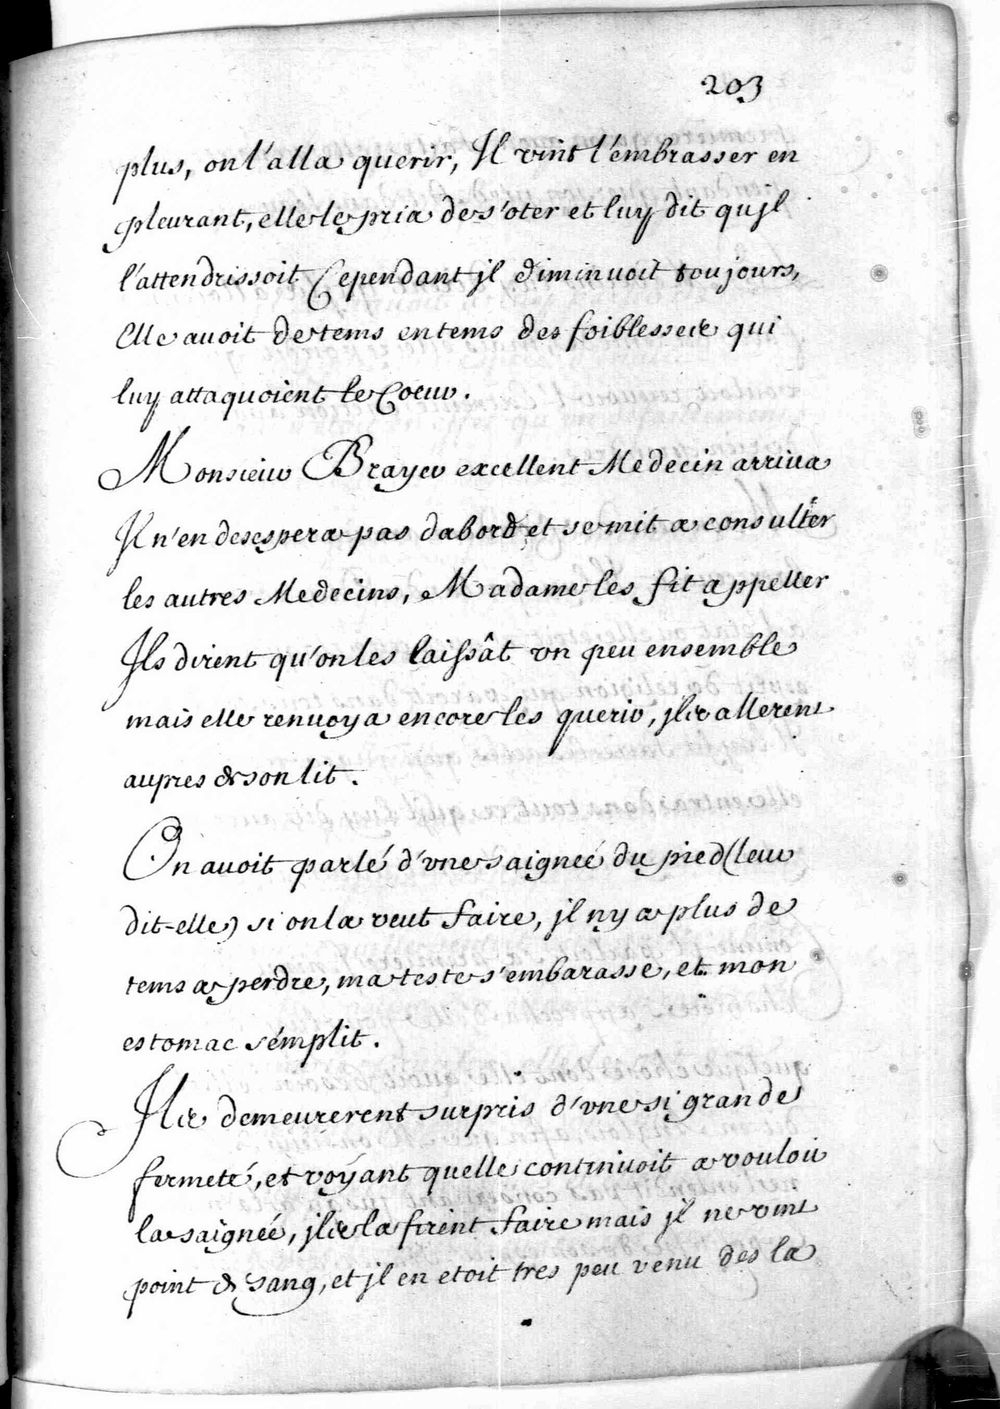 203
plus, on l'alla querir, Il vint l'embrasser en
pleurant, elle le pria de s'oter et luy dit qu jl
l'attendrissoit Cependant jl diminuoit toujours,
Elle avoit de tems en tems des foiblesses qui
luy attaquoient le Coeur.
Monsieur Brayer excellent Medecin arriva
Il n'en desespera pas dabord et se mit a consulter
les autres Medecins, Madame les fit appeller
Ils dirent qu'on les laissât vn peu ensemble
mais elle renuoya encore les querir, jls allerent
aupres de son lit.
On auoit parlé d'vne saigneé du pied (leur
dit-elle) si on la veut faire, jl ny a plus de
tems a perdre, ma teste s'embarasse, et mon
estomac s'émplit.
Ils demeurerent surpris d'vne si grande
fermeté, et voyant quelle continuoit a vouloir
la saigneé, jls la firent faire mais jl ne vint
point de sang, et jl en etoit tres peu venu des la